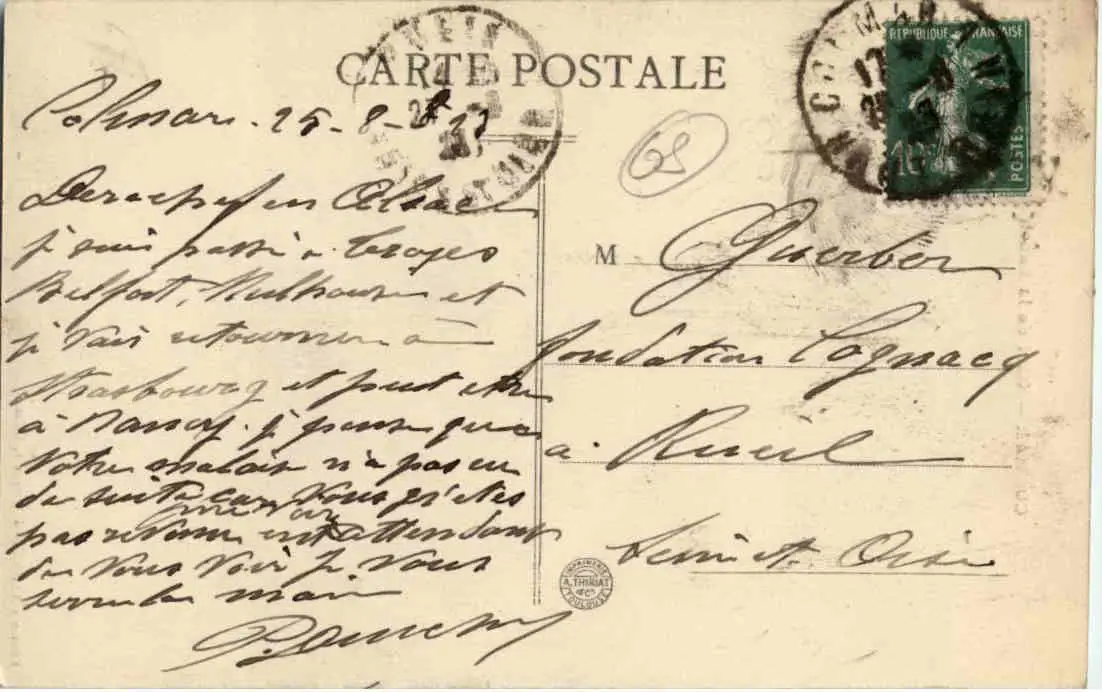 CARTE POSTALE
Colmar. 25-8-
RÉPUBLIQUE FRANÇAISE
10c
POSTES
COLMAR
RUEIL
SEINE ET OISE
65
en Alsace
je suis passé à Troyes
Belfort, Mulhouse et
je vais retourner à
Strasbourg et peut etre
à Nancy. je pense que
votre malaise n'a pas eu
de suite car vous n'etes
pas revenu en attendant
de vous voir je vous
serre la main
M Guerber
fondation Cognacq
a Rueil
Seine et Oise
IMPRIMERIE
A. THIRIAT
& Cie
TOULOUSE